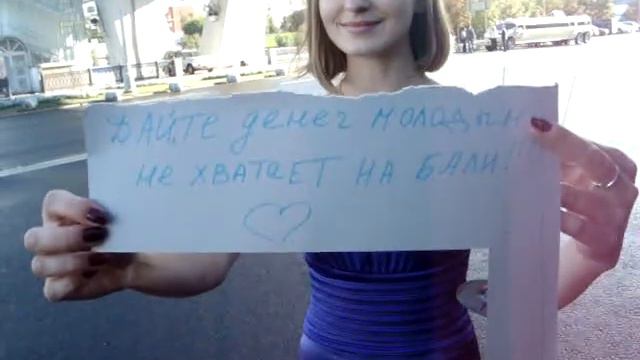 ДАЙТЕ денег молодым
не хватает на БАЛИ!!